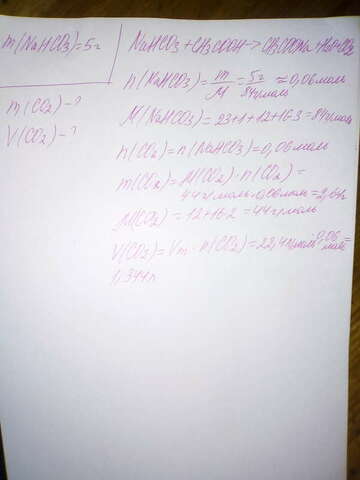 m(NaHCO3)=5г
m(CO2)-?
V(CO2)-?
NaHCO3+CH3COOH->CH3COONa+H2O+CO2
n(NaHCO3)=m/M=5г/84г/моль≈0,06моль
M(NaHCO3)=23+1+12+16·3=84г/моль
n(CO2)=n(NaHCO3)=0,06моль
m(CO2)=M(CO2)·n(CO2)=
44г/моль·0,06моль=2,64г
M(CO2)=12+16·2=44г/моль
V(CO2)=Vm·n(CO2)=22,4л/моль·0,06моль=
1,344л